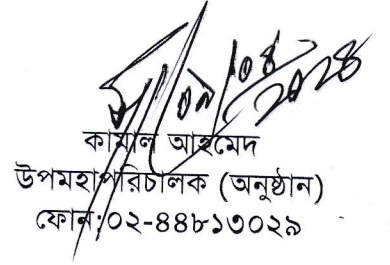 ০৯/০৪/২০২৪
কামাল আহমেদ
উপমহাপরিচালক (অনুষ্ঠান)
ফোন:০২-৪৪৮১৩০২৯